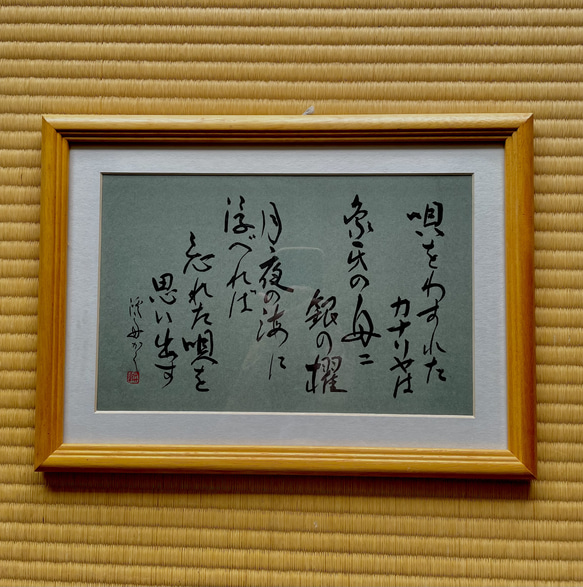 唄をわすれた
カナリヤは
象牙の舟ニ
銀の櫂
月夜の海に
浮べれば
忘れた唄を
思い出す